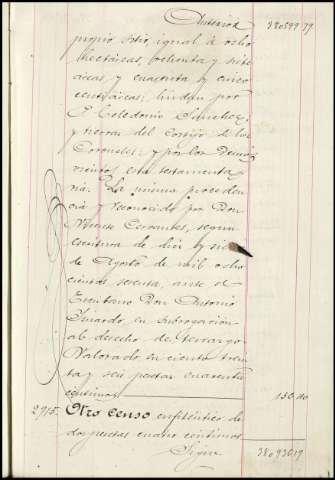 Anterior 380799'79
propio sitio, igual á ocho
hectáreas, ochenta y siete
áreas, y cuarenta y cinco
centiáreas; lindan por
P. Celedonio Sanchez,
y tierras del Cortijo de los
Coroneles; y por los demás
vientos, esta testamenta
ria. La misma proceden
cia y reconocido por Don
Vicente Cervantes, segun
escritura de diez y
de Agosto de mil ocho
cientos setenta, ante el
Escribano Don Antonio
en subrogacion
al derecho de terrazgo
Valorado en ciento trein
ta y seis pesetas cuarenta
centimos
2915. Otro censo enfitéutico de
dos pesetas cuatro centimos
Sigue